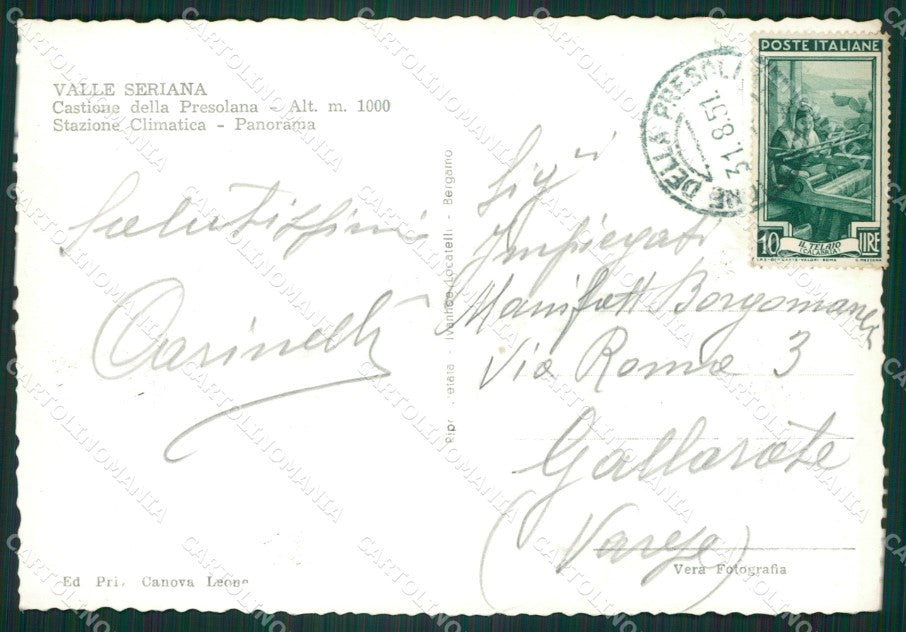 VALLE SERIANA
Castione della Presolana - Alt. m. 1000
Stazione Climatica - Panorama
Salutissimi
Ed Pri. Canova Leone
Locatelli - Bergamo
DELLA PRESOL
31.8.51
POSTE ITALIANE
10 LIRE
IL TELAIO
(CALABRIA)
Sigri
Impiegati
Manifatt Borgomaneri
Via Roma 3
Gallarate
(Varese)
Vera Fotografia
CARTOLINOMANIA